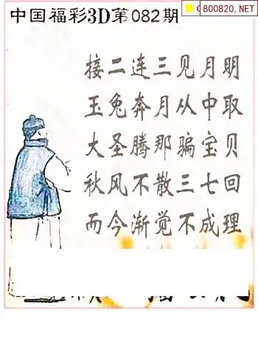 中国福彩3D第082期
800820.NET
接二连三见月明
玉兔奔月从中取
大圣腾那骗宝贝
秋风不散三七回
而今渐觉不成理